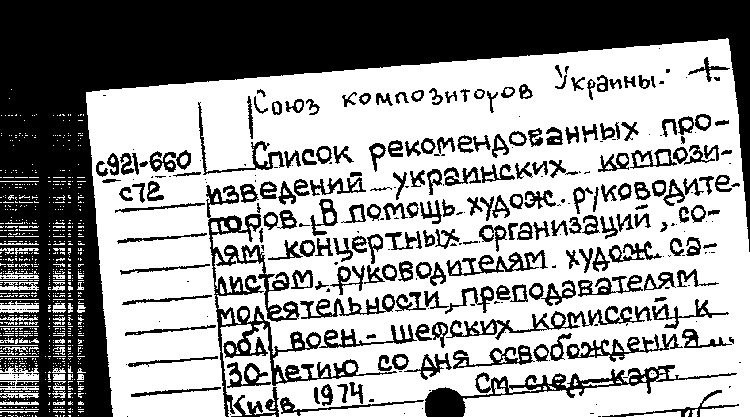 Союз композиторов Украины. 1.
с921-660
с72
Список рекомендованных про-
изведений украинских компози-
торов. В помощь худож. руководите-
лям концертных организаций, со-
листам, руководителям худож. са-
модеятельности, преподавателям
обл., воен.-шефских комиссий, к
30-летию со дня освобождения ...
Киев, 1974.
См след. карт.